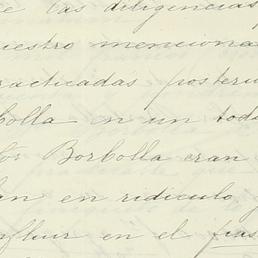 e las diligencias
uestro menciona
racticadas posterio
bolla en un todo
or Borbolla eran
an en ridiculo
nfluir en el fras